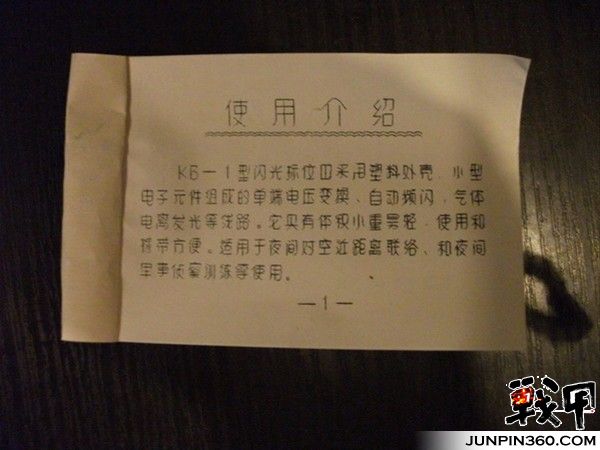 使用介绍
KG—1型闪光标位四采用塑料外壳，小型
电子元件组成的单端电压变换、自动频闪，气体
电离发光等线路。它具有体积小重量轻，使用和
携带方便。适用于夜间对空近距离联络、和夜间
军事侦察训练等使用。
—1—
戦甲
JUNPIN360.COM